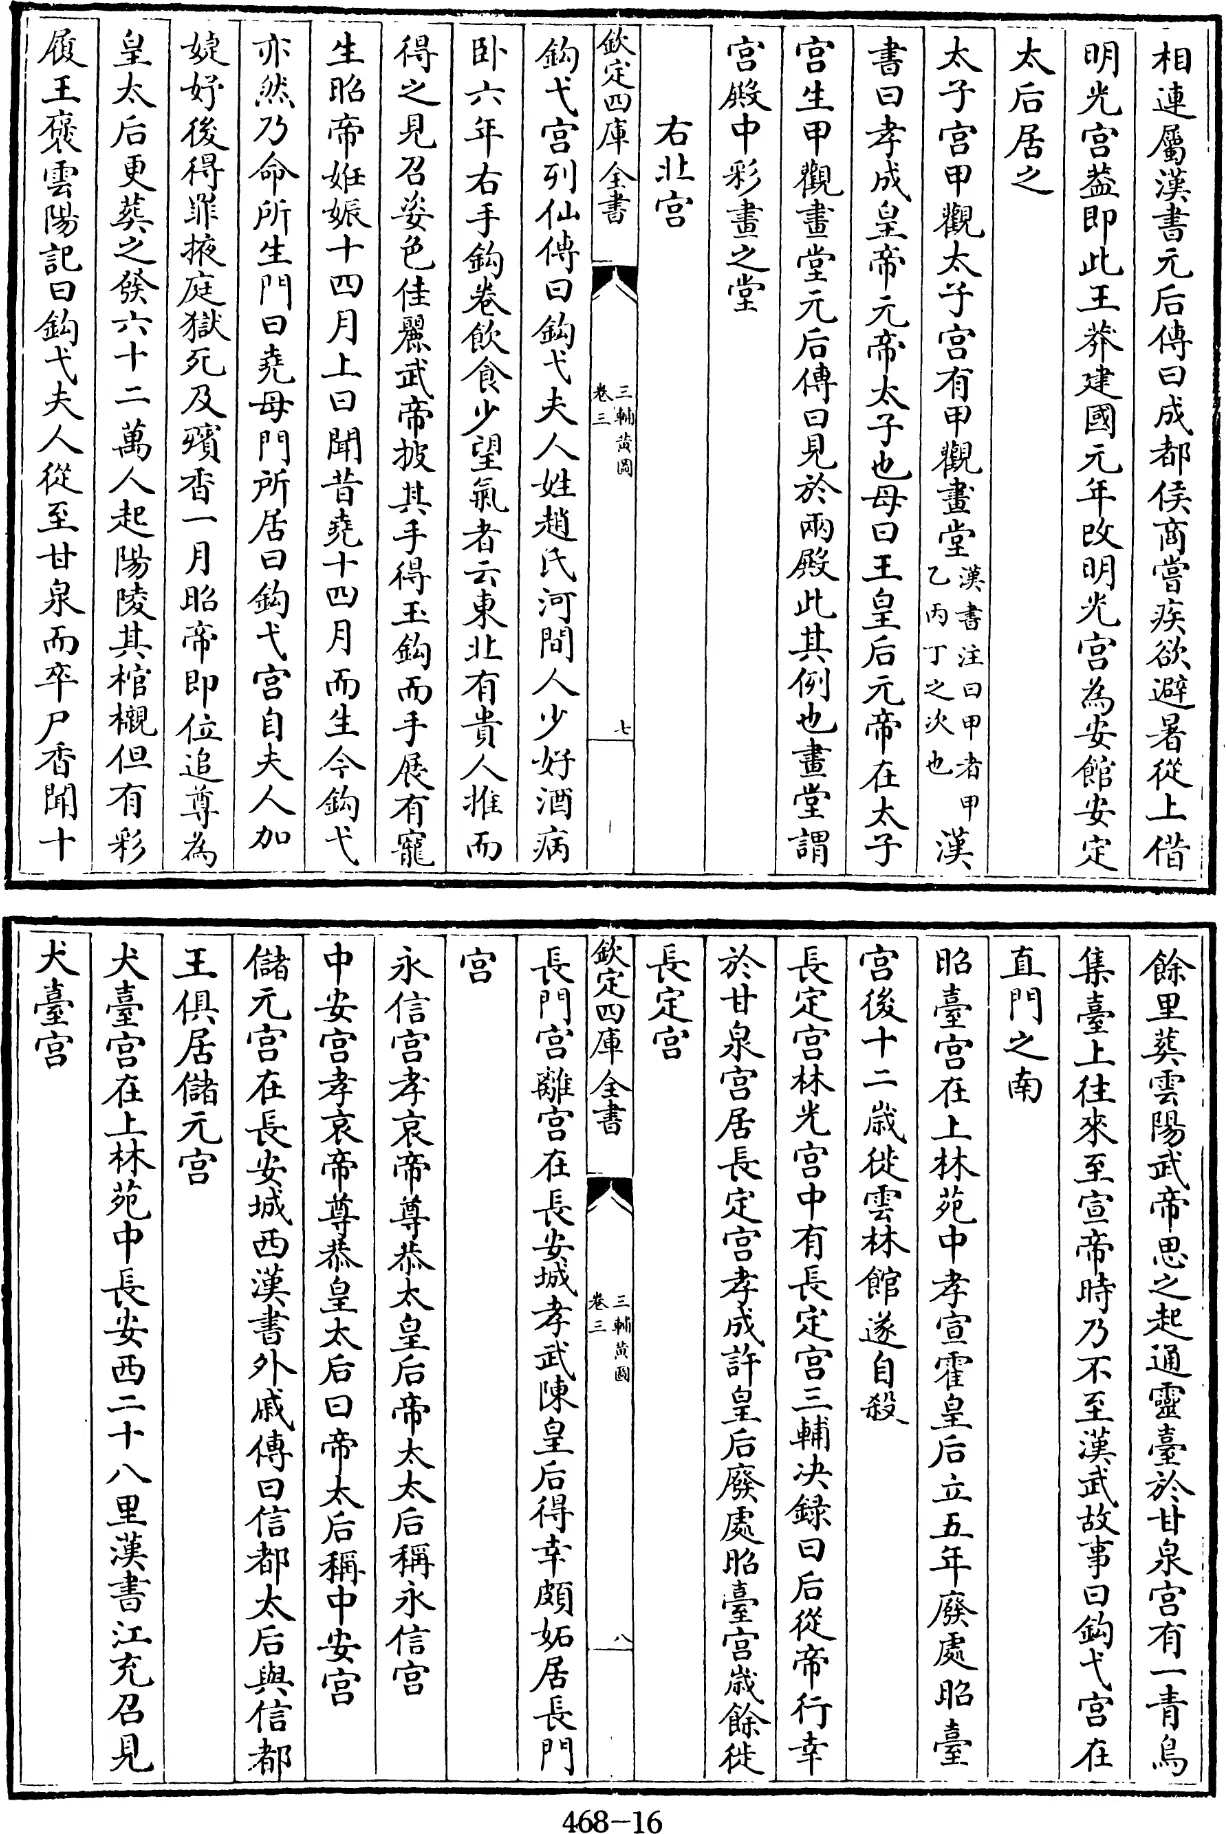 相連屬漢書元后傳曰成都侯商嘗疾欲避暑從上借
明光宮葢即此王莽建國元年改明光宮為安館安定
太后居之
太子宮甲觀太子宮有甲觀畫堂漢書注曰甲者甲乙丙丁之次也漢
書曰孝成皇帝元帝太子也母曰王皇后元帝在太子
宮生甲觀畫堂元后傳曰見於兩殿此其例也畫堂謂
宮殿中彩畫之堂
右北宮
欽定四庫全書
三輔黃圖
卷三
七
鈎弋宮列仙傳曰鈎弋夫人姓趙氏河間人少好酒病
卧六年右手鈎卷飲食少望氣者云東北有貴人推而
得之見召姿色佳麗武帝披其手得玉鈎而手展有寵
生昭帝姙娠十四月上曰聞昔堯十四月而生今鈎弋
亦然乃命所生門曰堯母門所居曰鈎弋宮自夫人加
婕妤後得罪掖庭獄死及殯香一月昭帝即位追尊為
皇太后更葬之發六十二萬人起陽陵其棺櫬但有彩
履王褒雲陽記曰鈎弋夫人從至甘泉而卒尸香聞十
餘里葬雲陽武帝思之起通靈臺於甘泉宮有一青鳥
集臺上往來至宣帝時乃不至漢武故事曰鈎弋宮在
直門之南
昭臺宮在上林苑中孝宣霍皇后立五年廢處昭臺
宮後十二歲徙雲林館遂自殺
長定宮林光宮中有長定宮三輔決録曰后從帝行幸
於甘泉宮居長定宮孝成許皇后廢處昭臺宮歲餘徙
長定宮
欽定四庫全書
三輔黃圖
卷三
八
長門宮離宮在長安城孝武陳皇后得幸頗妬居長門
宮
永信宮孝哀帝尊恭太皇后帝太太后稱永信宮
中安宮孝哀帝尊恭皇太后曰帝太后稱中安宮
儲元宮在長安城西漢書外戚傳曰信都太后與信都
王俱居儲元宮
犬臺宮在上林苑中長安西二十八里漢書江充召見
犬臺宮
468-16